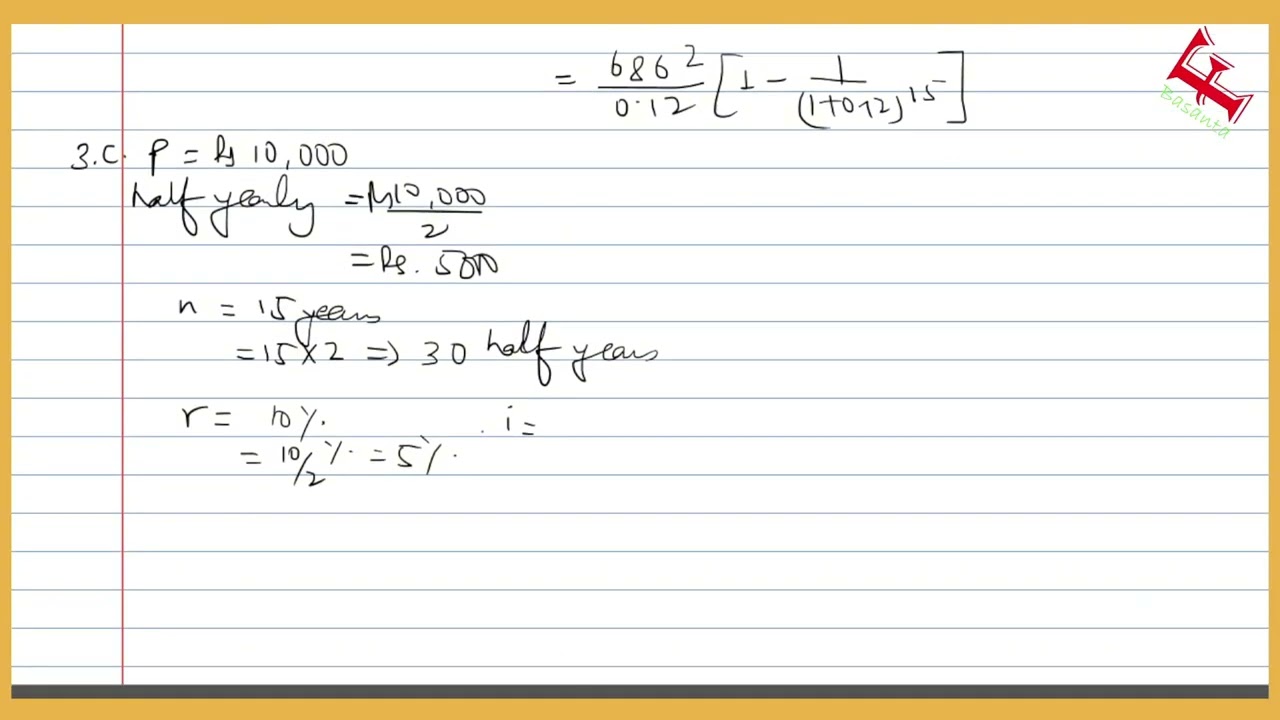 = 6862/0.12 [1 - 1/(1+0.12)^15]
3.C. P = Rs 10,000
half yearly = Rs 10,000/2
= Rs. 5000
n = 15 years
= 15 × 2 => 30 half years
r = 10%. i =
= 10/2 % = 5%.
Basanta